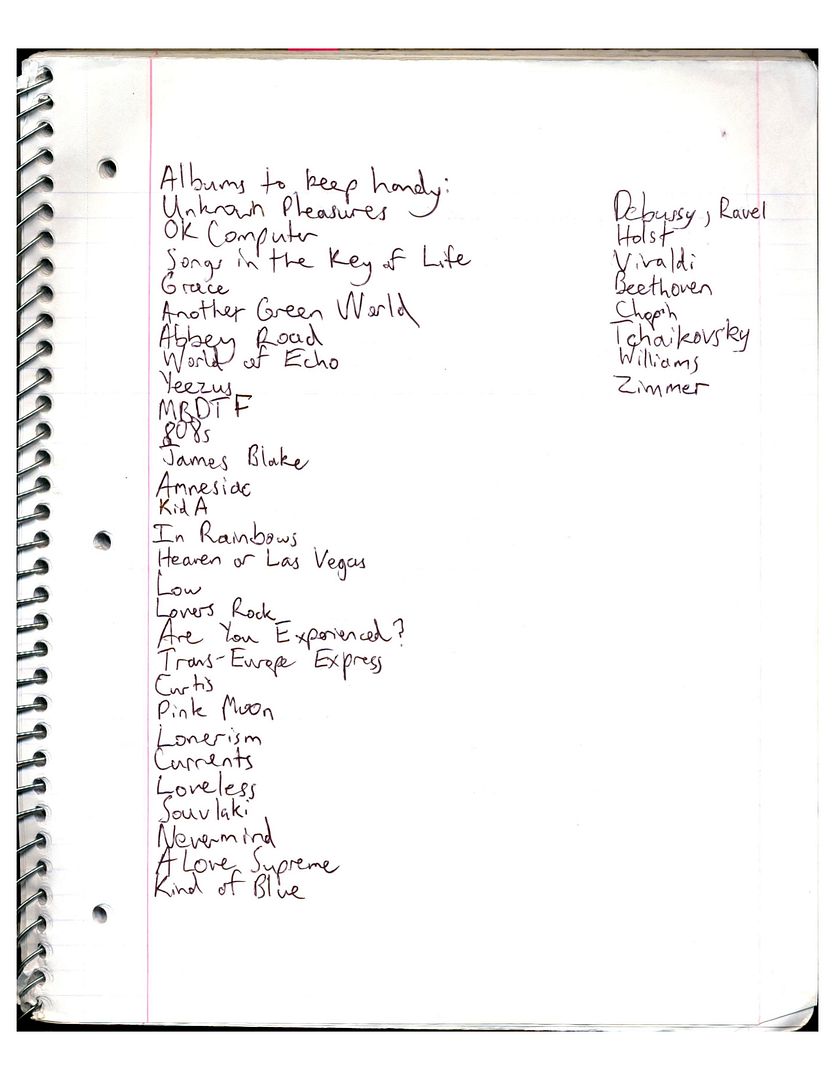 Albums to keep handy:
Unknown Pleasures
OK Computer
Songs in the Key of Life
Grace
Another Green World
Abbey Road
World of Echo
Yeezus
MBDTF
808s
James Blake
Amnesiac
Kid A
In Rainbows
Heaven or Las Vegas
Low
Lovers Rock
Are You Experienced?
Trans-Europe Express
Curtis
Pink Moon
Lonerism
Currents
Loveless
Souvlaki
Nevermind
A Love Supreme
Kind of Blue
Debussy, Ravel
Holst
Vivaldi
Beethoven
Chopin
Tchaikovsky
Williams
Zimmer